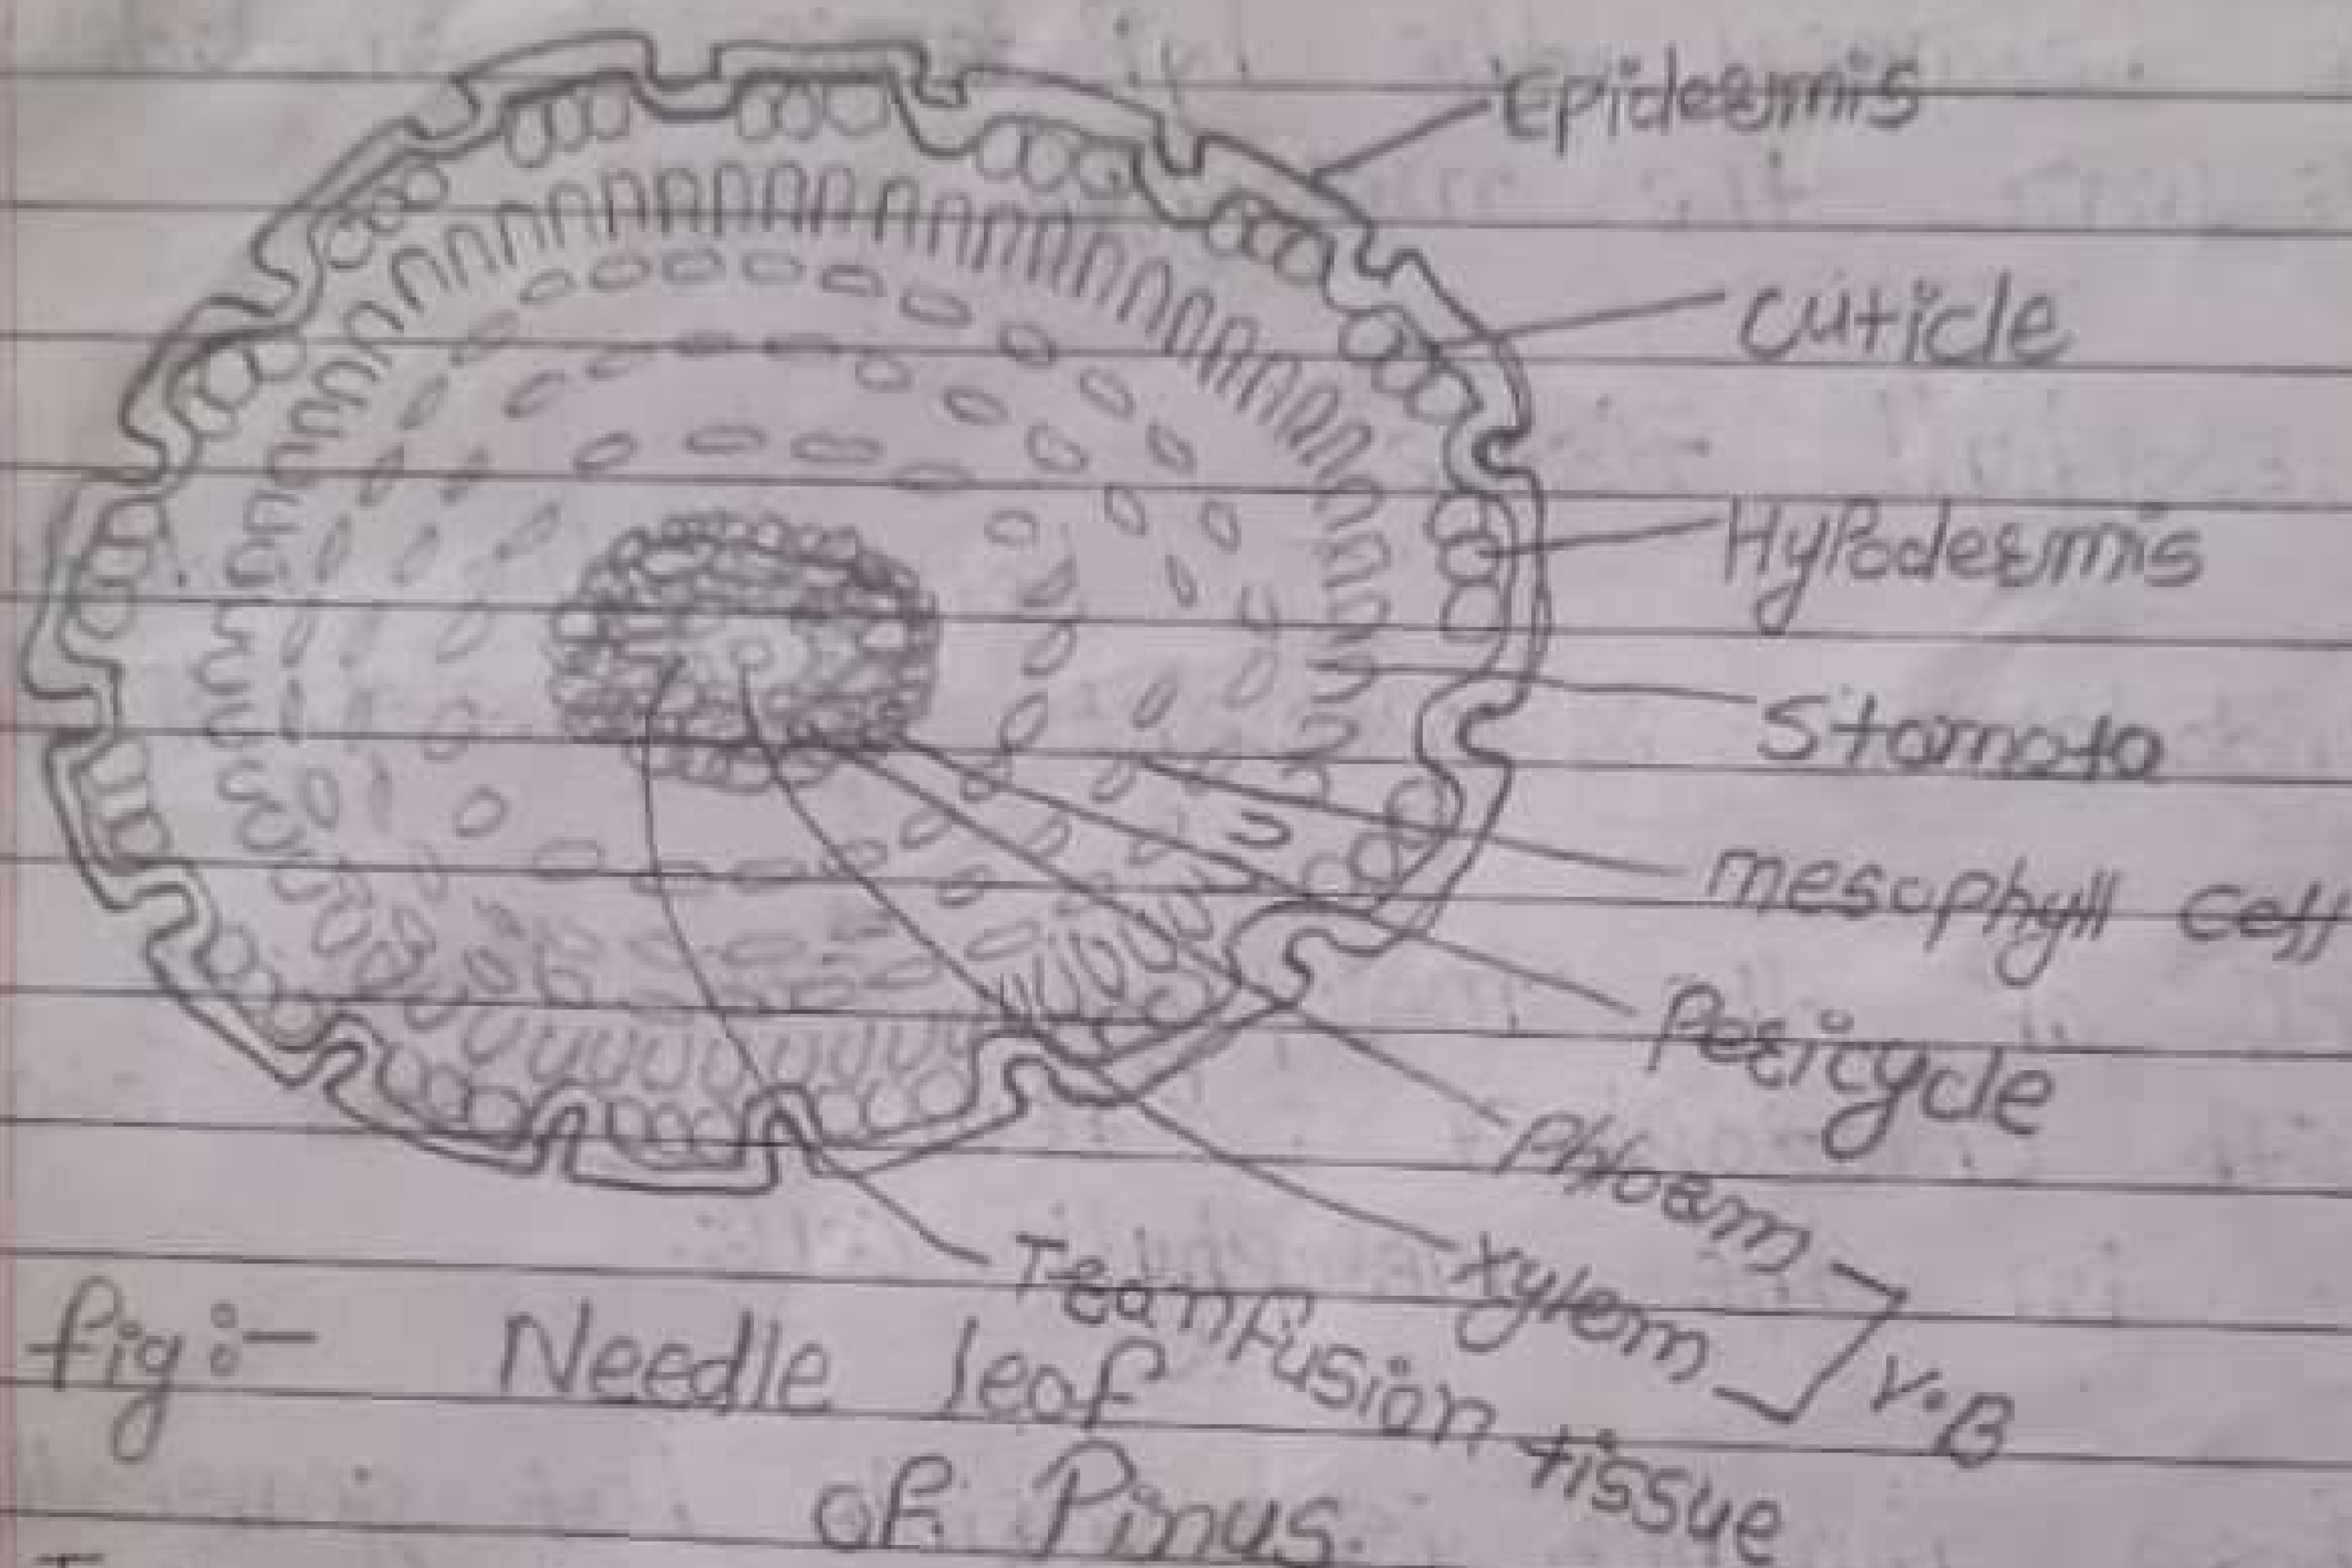 Epidermis
cuticle
Hypodermis
Stomata
mesophyll cell
Pericycle
Phloem
xylem
V.B
Tranfusion tissue
fig :- Needle leaf
of Pinus.